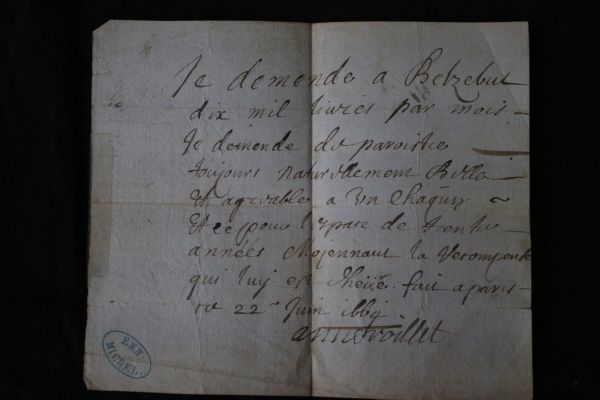 Je demende a Belzebut
dix mil livres par mois
Je demende de paroistre
toujours naturellement Belle
Et agreable a Un Chaqun
Et ce pour l'espace de trente
années Moiennant la recompense
qui luy est fait a paris
ce 22 Juin
anne voillet
ERN.
MICHEL.